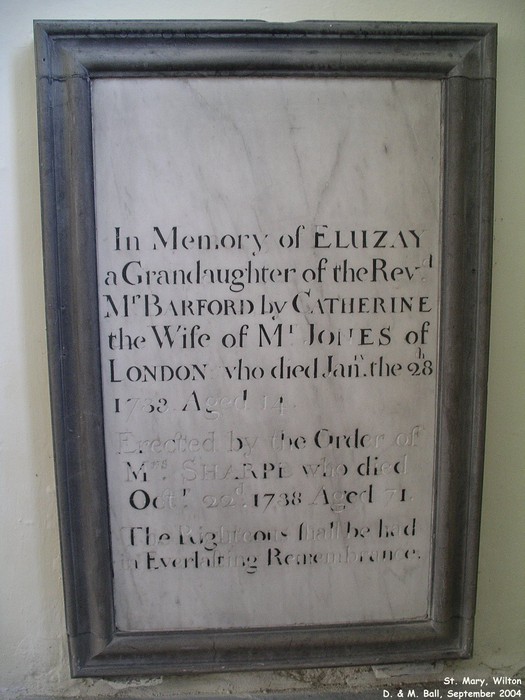 In Memory of ELUZAY
a Grandaughter of the Revd
Mr BARFORD by CATHERINE
the Wife of Mr JONES of
LONDON who died Janry. the 28th
1738 Aged 14.
Erected by the Order of
Mrs. SHARPE who died
Octr. 22d. 1738 Aged 71.
The Righteous ſhall be had
in Everlaſting Remembrance.
St. Mary, Wilton
D. & M. Ball, September 2004